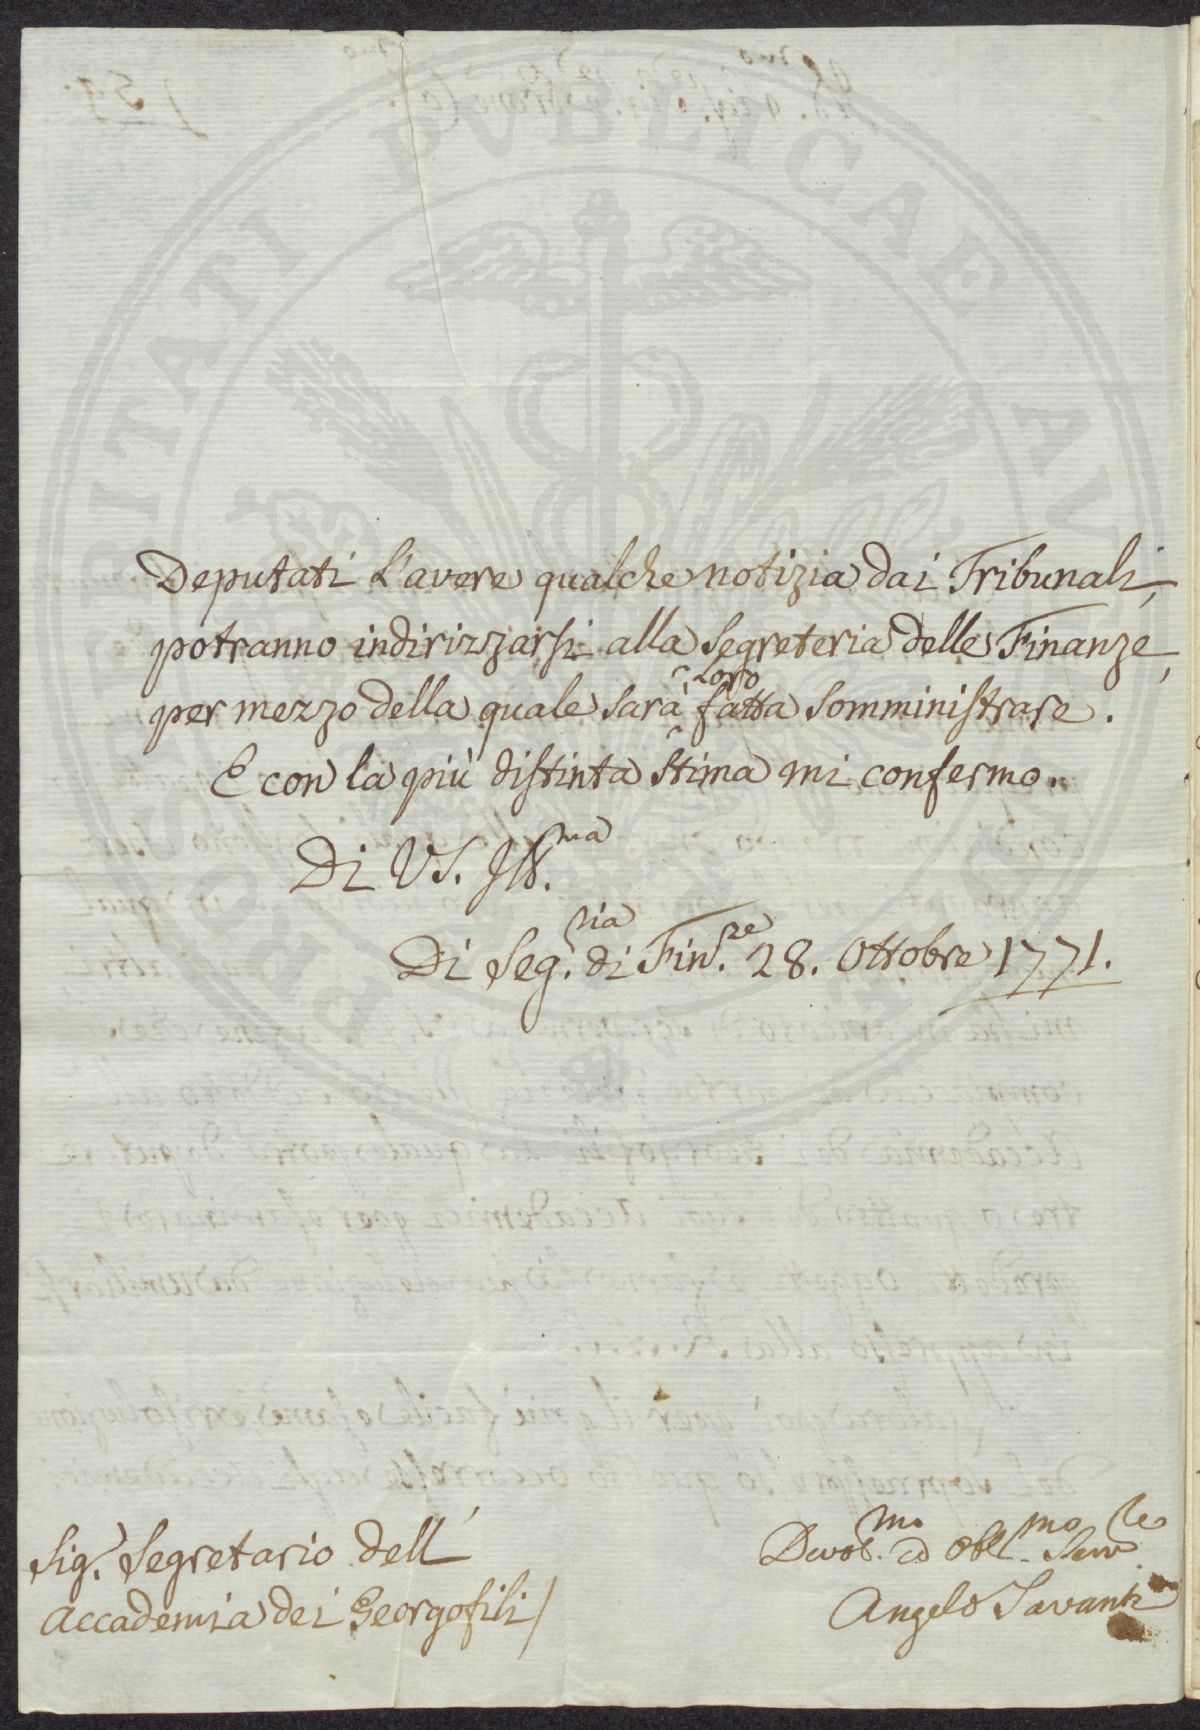 PROSPERITATI PUBLICAE AUGENDAE
Deputati l'avere qualche notizia dai Tribunali,
potranno indirizzarsi alla Segreteria delle Finanze,
per mezzo della quale sarà ^Loro fatta somministrare.
E con la più distinta stima mi confermo.
Di VS. Ill.ma
Di Seg.ria di Fin.ze 28. Ottobre 1771.
Sig.r Segretario dell'
Accademia dei Georgofili/
Devot.mo ed Obbl.mo Serv.re
Angelo Tavanti